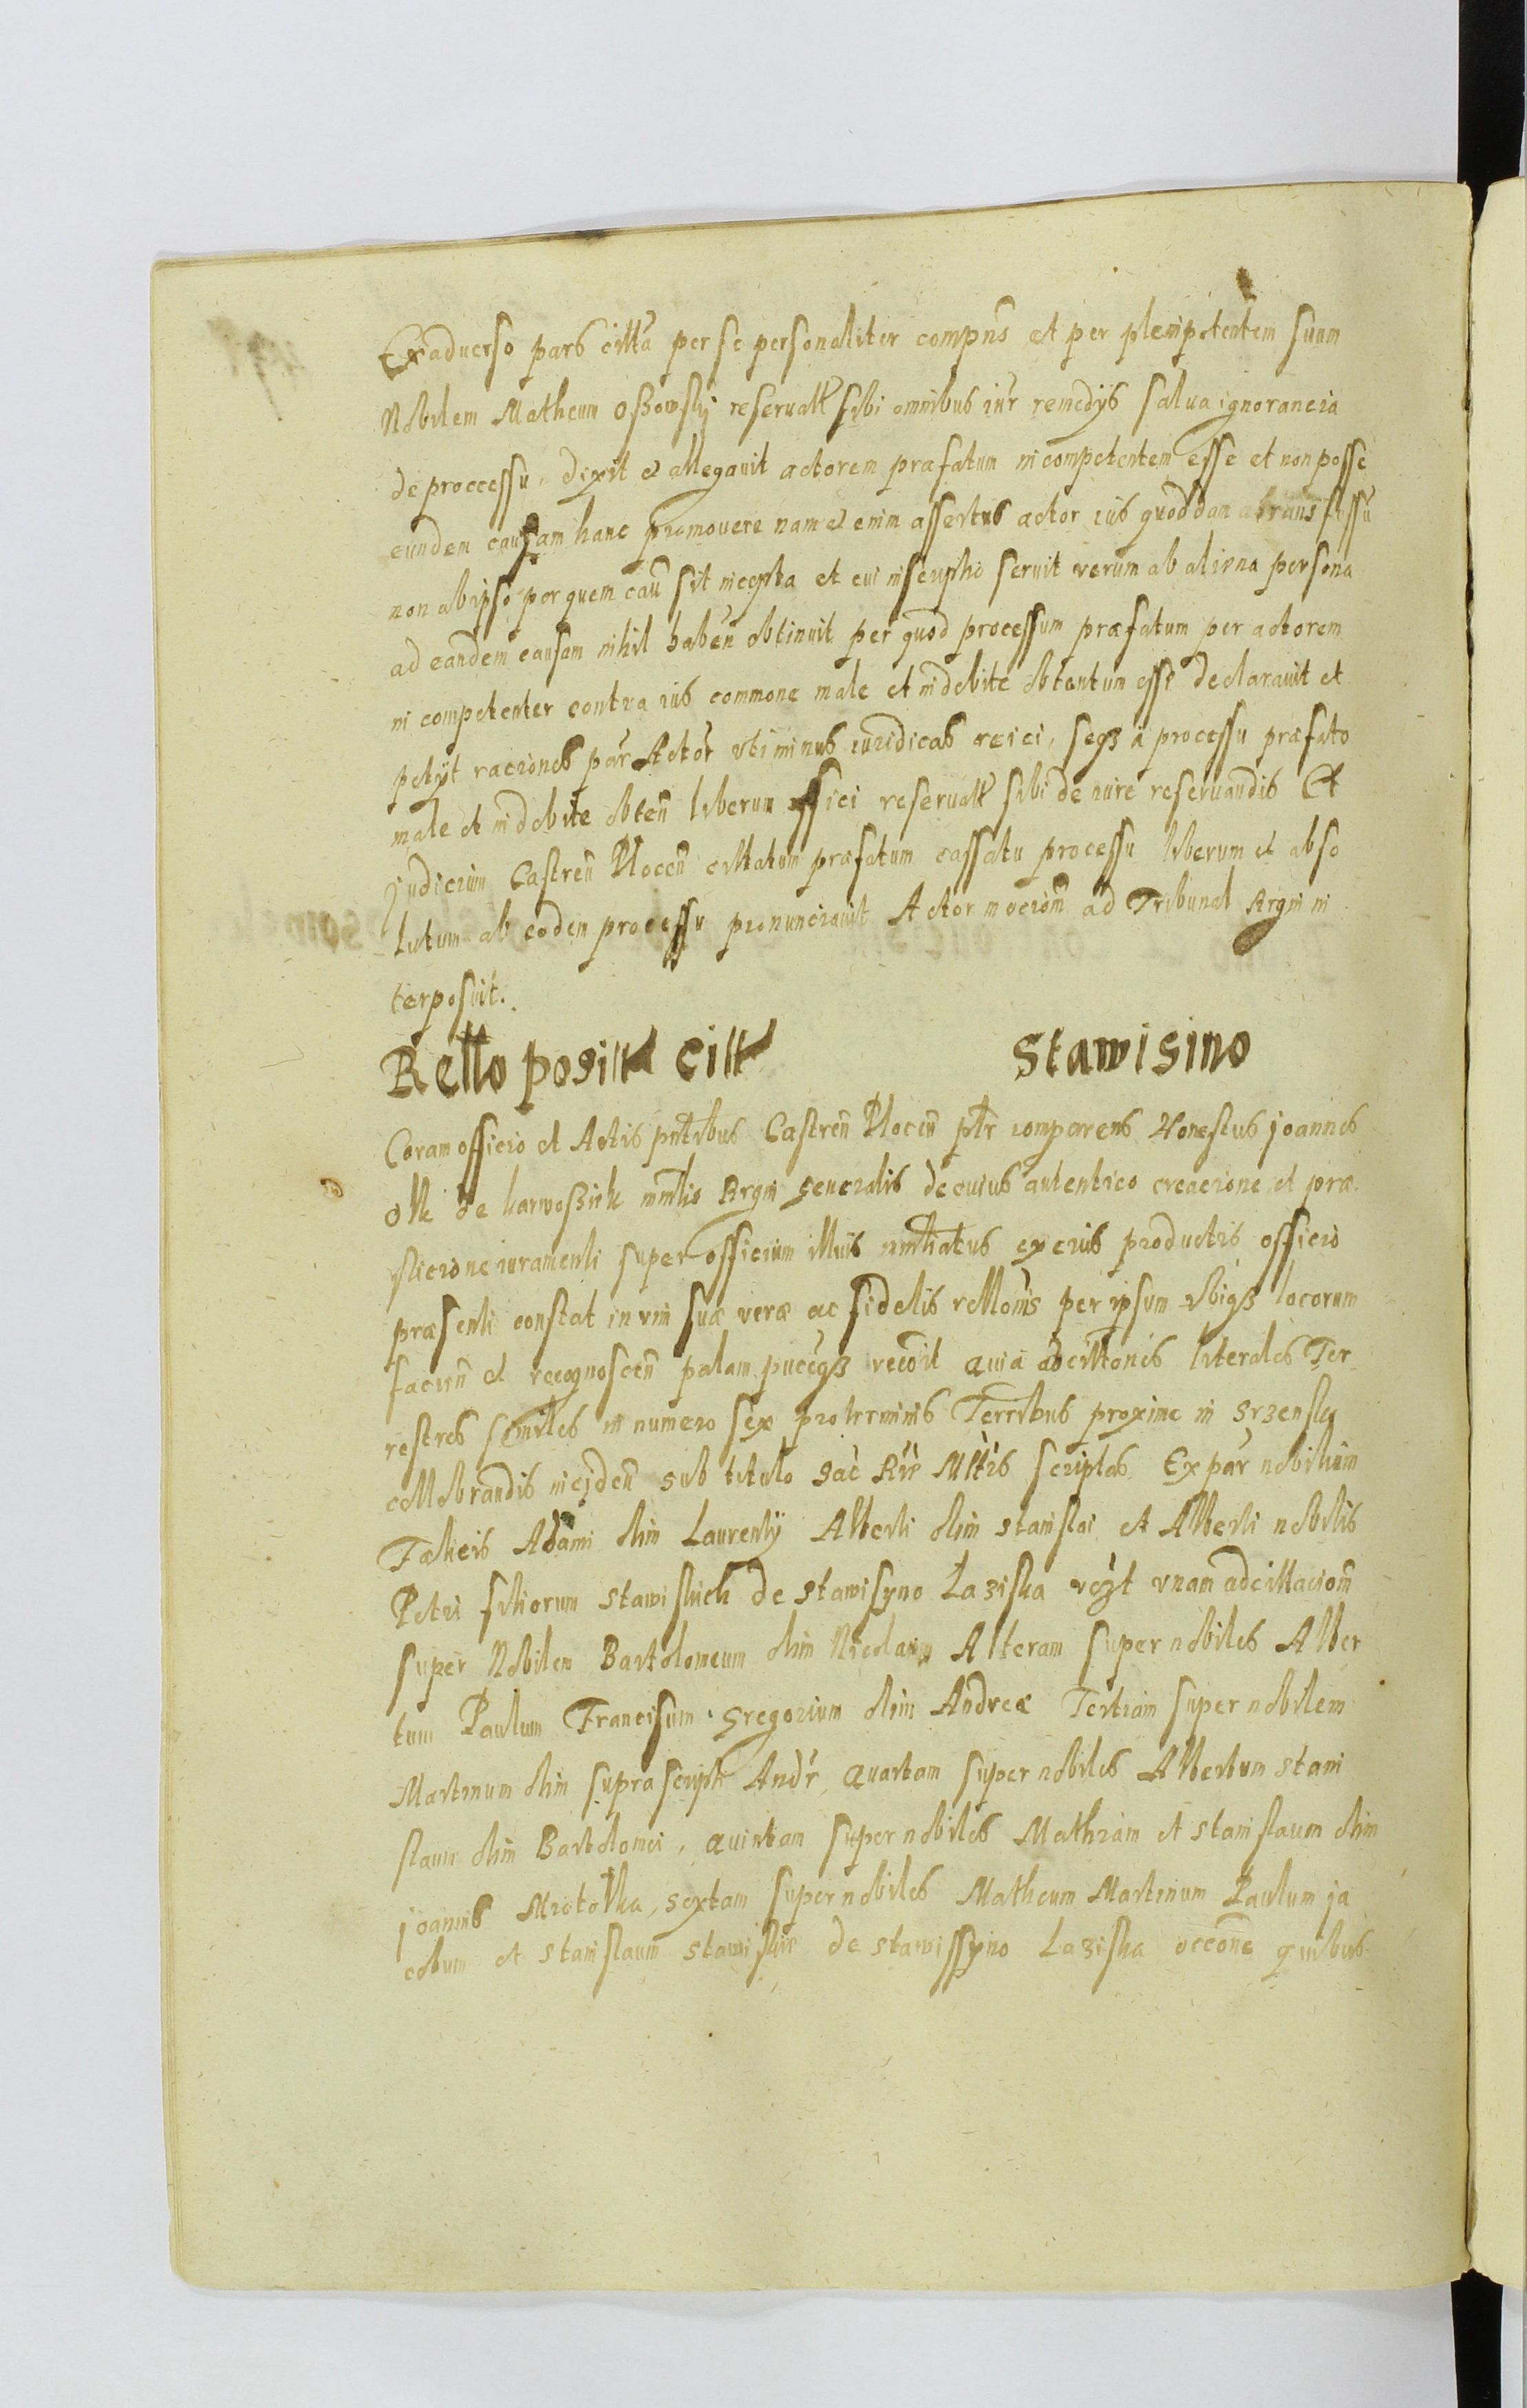 Ex aduerso pars citta per se personaliter compns et per plenipotentem suum
Nobilem Matheum Oßowsky reseruatt sibi omnibus iur remedijs salua ignorancia
de proccessu, dixit et allegauit actorem præfatum incompetentem esse et non posse
eundem causam hanc promouere nam et enim assertus actor ius quoddam a transfussu
non ab ipso per quem cau sit incepta et cui inscriptio seruit verum ab aliena persona
ad eandem causam nihil haben obtinuit per quod processum præfatum per actorem
incompetenter contra ius commone male et indebite obtentum esse declarauit et
petijt raciones par Actor vti minus iuridicas reici, seqz a processu præfato
male et indebite obten liberum ffici reseruatt sibi de iure reseruandis Et
Judicium Castren Plocen cittatum præfatum cassatu processu liberum et abso
lutum ab eodem processu pronunciauit Actor mociom ad Tribunal Regni in
terposuit.
Retto positt citt Stawisino
Coram officio et Actis pntibus Castren Plocen ptr comparens Honestus Joannes
olk de karwoßiek mntlis Regni generalis de cuius autentico creacione et præ
sticione iuramenti super officium illius mntliatus ex eius productis officio
præsenti constat in vim suæ veræ ac fidelis rettonis per ipsum vbiqz locorum
facien et recognoscen palam puceqz recoit Quia adcittones literales Ter
restres similes in numero sex pro terminis Terribus proxime in Srzensky
cellebrandis inciden sub titulo Sac Rie Mttis scriptas Ex par nobilium
Felicis Adami olim Laurentij Alberti olim Stanislai et Alberti nobilis
Petri filiorum Stawiskich de Stawisyno Laziska vczt vnam adcittaciom
super Nobilem Bartolomeum olim Nicolaum Alteram super nobiles Alber
tum Paulum Francisum Gregorium olim Andreæ Tertiam super nobilem
Martinum olim supra script Andr, Quartam super nobiles Albertum Stani
slaum olim Bartolomei, Quintam super nobiles Mathiam et Stanislaum olim
Joannis Miotelka, Sextam super nobiles Matheum Martinum Paulum Ja
cobum et Stanislaum Stawiskie de Stawissyno Laziska occone quibus